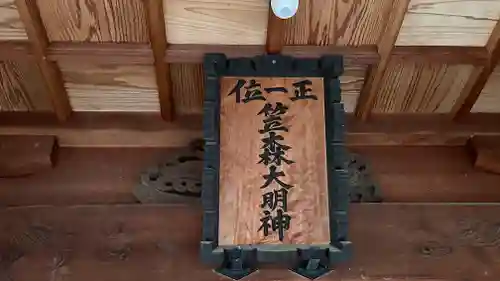 正一位
笠森大明神